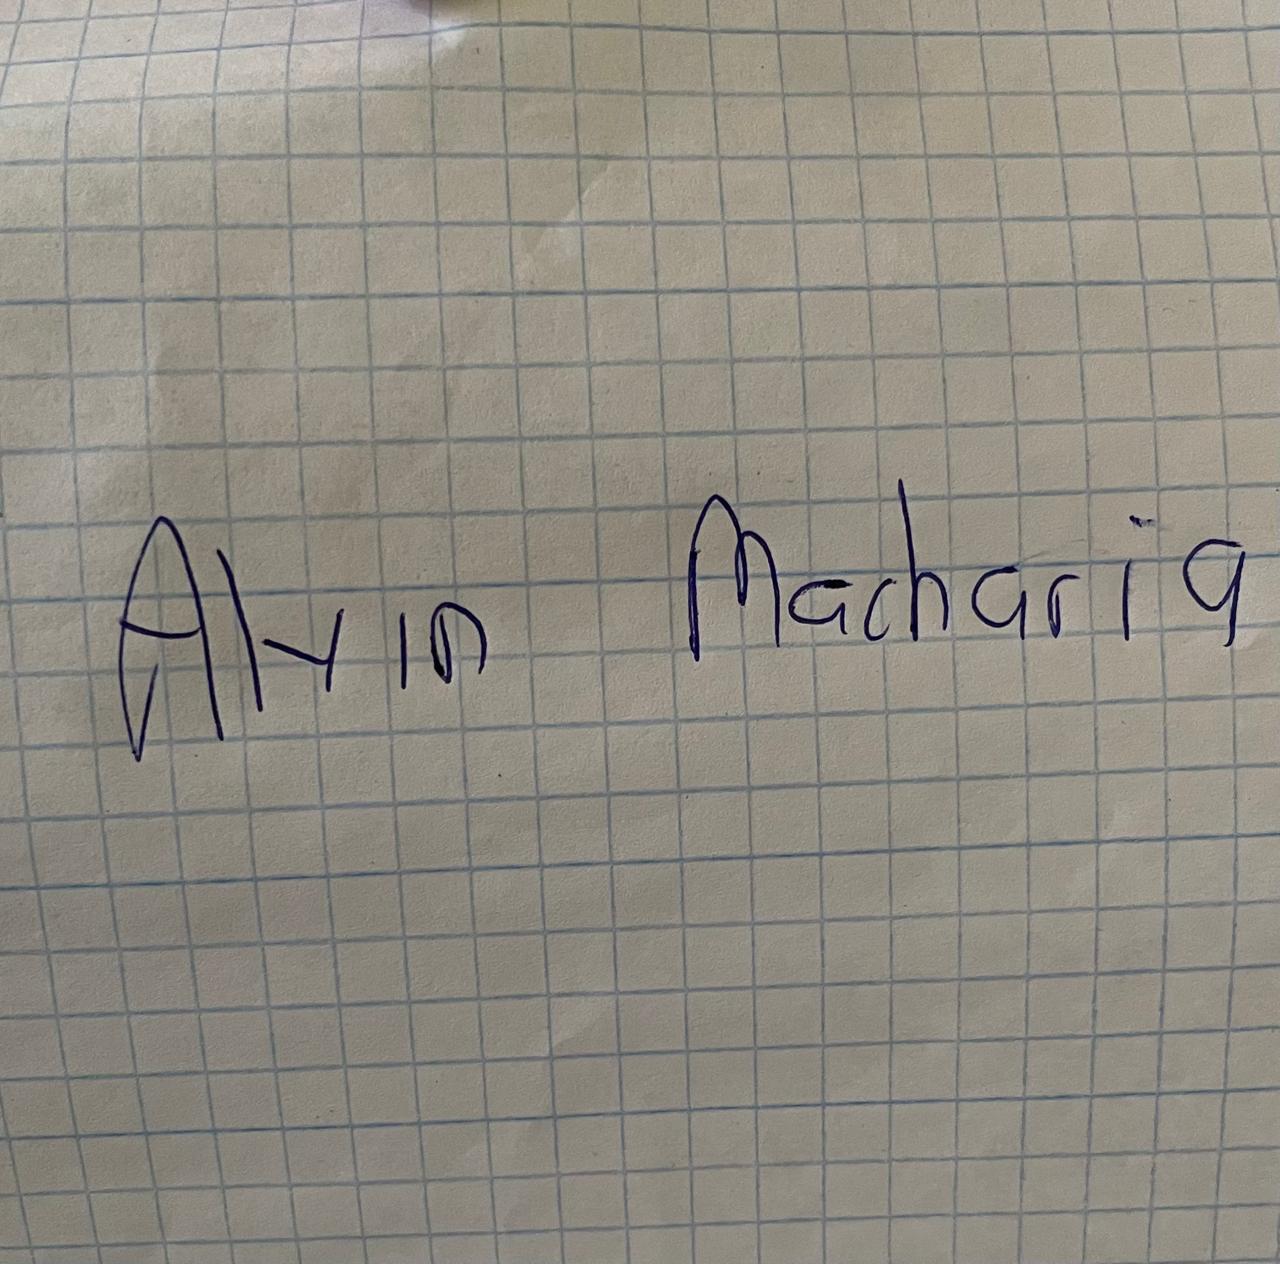 Alvin Macharia